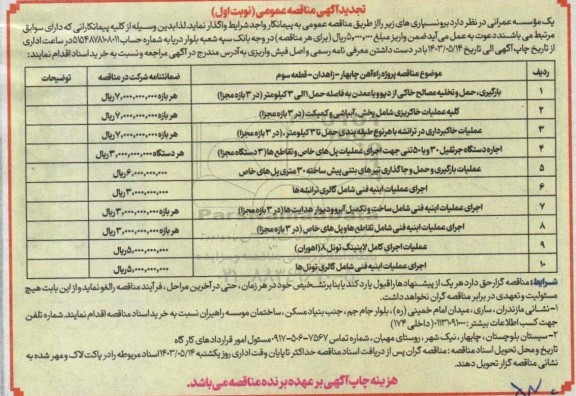 تجدید آگهی مناقصه عمومی (نوبت اول)
یک مؤسسه عمرانی در نظر دارد برونسپاری های زیر را از طریق مناقصه عمومی به پیمانکار واجد شرایط واگذار نماید. لذا بدین وسیله از کلیه پیمانکارانی که دارای سوابق
مرتبط می باشند دعوت به عمل می آید ضمن واریز مبلغ ۵,۰۰۰,۰۰۰ ریال (برای هر مناقصه) در وجه بانک سپه شعبه بلوار دریا به شماره حساب در ساعت اداری
از تاریخ چاپ آگهی الی تاریخ ۱۴۰۳/۰۵/۱۴ با در دست داشتن معرفی نامه رسمی و اصل فیش واریزی به آدرس مندرج در آگهی مراجعه و نسبت به خرید اسناد اقدام نمایند:
ردیف موضوع مناقصه پروژه راه آهن چابهار - زاهدان - قطعه سوم ضمانتنامه شرکت در مناقصه توضیحات
۱ بارگیری، حمل و تخلیه مصالح خاکی از دپو و یا معدن به فاصله حمل ۱ الی ۳ کیلومتر (در ۳ بازه مجزا) هر بازه ۷,۰۰۰,۰۰۰,۰۰۰ ریال
۲ کلیه عملیات خاکریزی شامل پخش، آبپاشی و کمپکت (در ۳ بازه مجزا) هر بازه ۷,۰۰۰,۰۰۰,۰۰۰ ریال
۳ عملیات خاکبرداری در ترانشه با هر نوع طبقه بندی حمل تا ۳ کیلومتر، (در ۳ بازه مجزا) هر بازه ۷,۰۰۰,۰۰۰,۰۰۰ ریال
۴ اجاره دستگاه جرثقیل ۳۰ و یا ۵۰ تنی جهت اجرای عملیات پل های خاص و تقاطع ها (۳ دستگاه مجزا) هر دستگاه ۳,۰۰۰,۰۰۰,۰۰۰ ریال
۵ عملیات بارگیری و حمل و جاگذاری تیرهای بتنی پیش ساخته ۳۰ متری پل های خاص ۶,۰۰۰,۰۰۰,۰۰۰ ریال
۶ اجرای عملیات ابنیه فنی شامل گالری ترانشه ها ۳,۰۰۰,۰۰۰,۰۰۰ ریال
۷ اجرای عملیات ابنیه فنی شامل ساخت و تکمیل آبرو و دیوار هدایت ها (در ۳ بازه مجزا) هر بازه ۳,۰۰۰,۰۰۰,۰۰۰ ریال
۸ اجرای عملیات ابنیه فنی شامل تقاطع ها و پل های خاص (در ۳ بازه مجزا) هر بازه ۳,۰۰۰,۰۰۰,۰۰۰ ریال
۹ عملیات اجرای کامل لاینینگ تونل ۸ (اهوران) ۵,۰۰۰,۰۰۰,۰۰۰ ریال
۱۰ اجرای عملیات ابنیه فنی شامل گالری تونل ها ۵,۰۰۰,۰۰۰,۰۰۰ ریال
شرایط: مناقصه گزار حق دارد هر یک از پیشنهادها را قبول یا رد کند یا بنا بر تشخیص خود در هر زمان، حتی در آخرین مراحل، فرآیند مناقصه را لغو نماید و از این بابت هیچ
مسئولیت و تعهدی در برابر مناقصه گران نخواهد داشت.
۱- نشانی مازندران، ساری، میدان امام خمینی (ره)، بلوار جام جم، جنب بنیاد مسکن، ساختمان موسسه راهبران نسبت به خرید اسناد مناقصه اقدام نمایند. شماره تلفن
جهت کسب اطلاعات بیشتر: (داخلی ۱۷۴)
۲- سیستان بلوچستان، چابهار، نیک شهر، روستای مهبان، شماره تماس ۷۵۶۷-۵۰۶-۰۹۱۷ مسئول امور قراردادهای کارگاه
تاریخ و محل تحویل اسناد مناقصه: مناقصه گران پس از دریافت اسناد مناقصه حداکثر تا پایان وقت اداری روز یکشنبه ۱۴۰۳/۰۵/۱۴ اسناد مربوطه را در پاکت لاک و مهر شده به
نشانی مناقصه گزار تحویل دهند.
هزینه چاپ آگهی بر عهده برنده مناقصه می باشد.